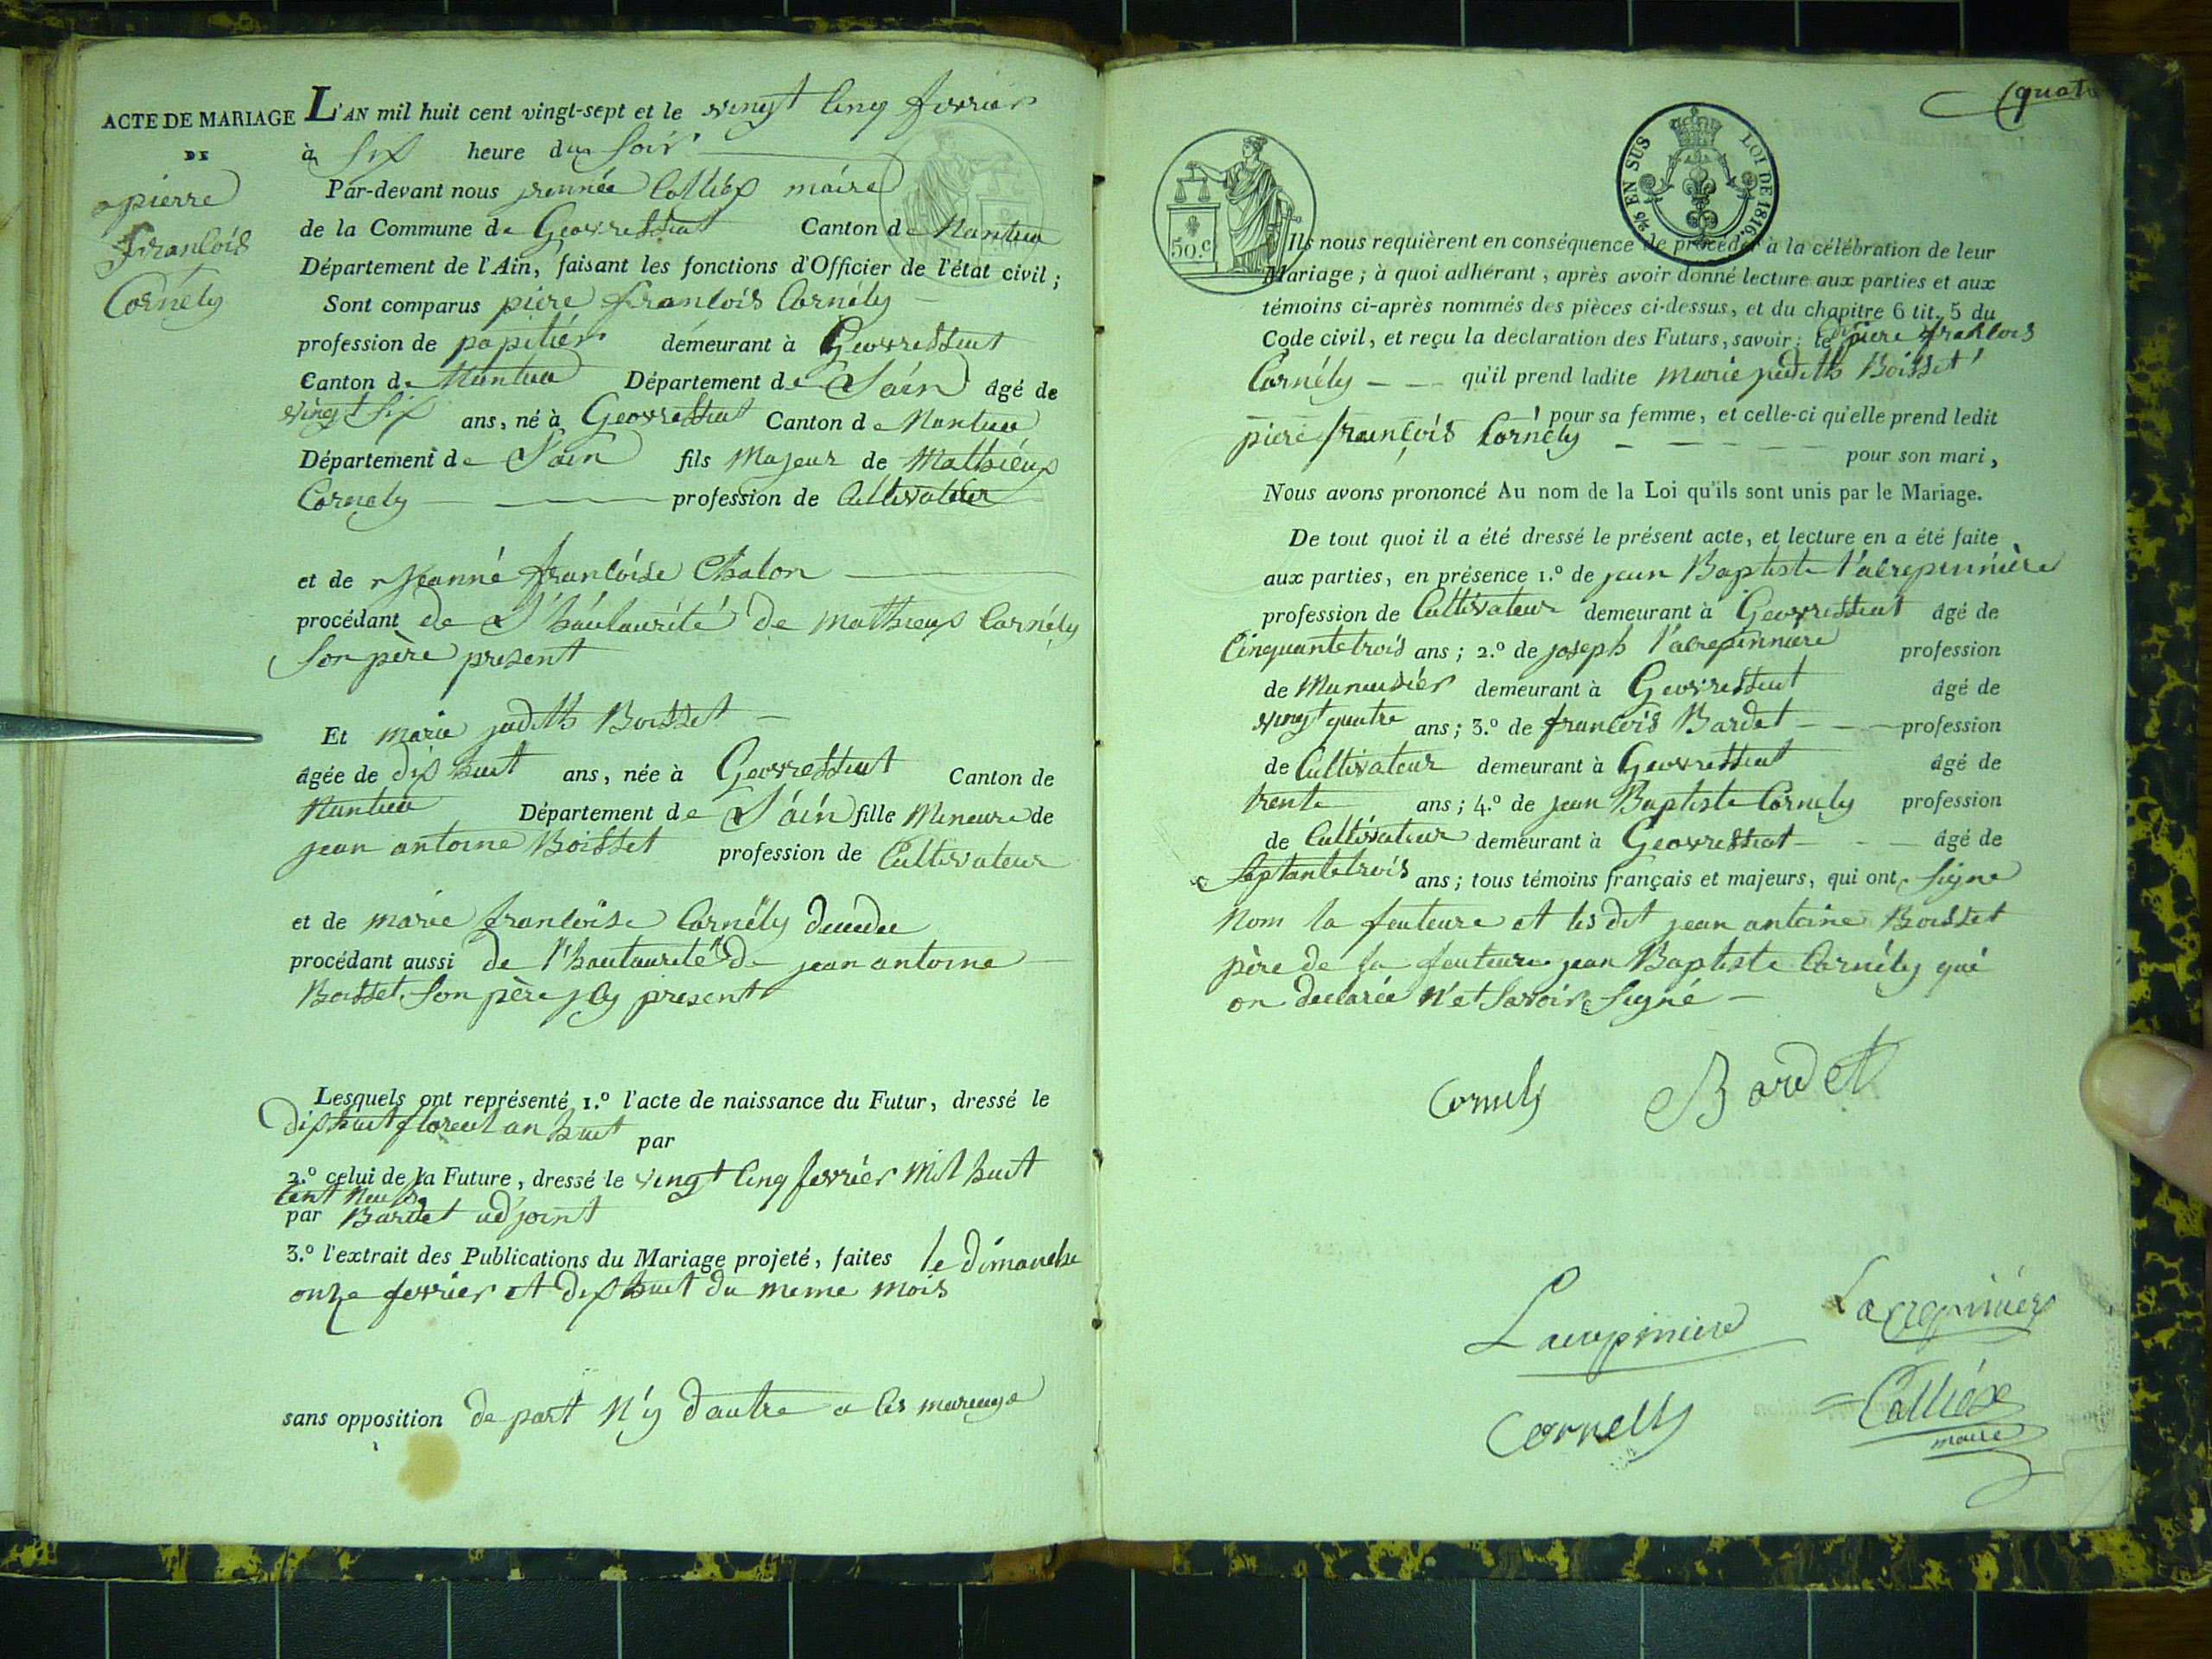 ACTE DE MARIAGE
DE
pierre
francois
Cornély
L'AN mil huit cent vingt-sept et le vingt cinq fevrier
à six heure du soir
Par-devant nous Colliex maire
de la Commune de Geovressiat Canton de Nantua
Département de l'Ain, faisant les fonctions d'Officier de l'état civil;
Sont comparus piere francois Cornély
profession de demeurant à Geovressiat
Canton de Nantua Département de l'ain âgé de
vingt six ans, né à Geovressiat Canton de Nantua
Département de l'ain fils Majeur de Mathieux
Cornely profession de Cultivateur
et de Jeanne francoise Chalon
procédant de l'hautaurité de mathieux Cornély
son père present
Et marie judith Boisset
âgée de dix huit ans, née à Geovressiat Canton de
Nantua Département de l'ain fille Mineure de
jean antoine Boisset profession de Cultivateur
et de marie francoise Cornély decedee
procédant aussi de l'hautaurité de jean antoine
Boisset son père present
Lesquels ont représenté 1.º l'acte de naissance du Futur, dressé le
dix huit floreal an huit par
2.º celui de la Future, dressé le vingt cinq fevrier mil huit
cent neuf
par Bardet adjoint
3.º l'extrait des Publications du Mariage projeté, faites le dimanche
onze fevrier et dix huit du meme mois
sans opposition de part n'y dautre a ces mariage
quatre
50.c
2/5 EN SUS LOI DE 1816.
Ils nous requièrent en conséquence de procéder à la célébration de leur
Mariage; à quoi adhérant, après avoir donné lecture aux parties et aux
témoins ci-après nommés des pièces ci-dessus, et du chapitre 6 tit. 5 du
Code civil, et reçu la déclaration des Futurs, savoir: le dit piere francois
Cornély qu'il prend ladite marie judith Boisset
pour sa femme, et celle-ci qu'elle prend ledit
piere françois Cornély
pour son mari,
Nous avons prononcé Au nom de la Loi qu'ils sont unis par le Mariage.
De tout quoi il a été dressé le présent acte, et lecture en a été faite
aux parties, en présence 1.º de jean Baptiste l'acrepinnière
profession de Cultivateur demeurant à Geovressiat âgé de
Cinquante trois ans; 2.º de joseph l'acrepinniere profession
de Menuisier demeurant à Geovressiat âgé de
vingt quatre ans; 3.º de francois Bardet profession
de Cultivateur demeurant à Geovressiat âgé de
trente ans; 4.º de jean Baptiste Cornely profession
de Cultivateur demeurant à Geovressiat âgé de
septante trois ans; tous témoins français et majeurs, qui ont signe
Nom la feuteure et les dit jean antoine Boisset
père de la feuteure jean Baptiste Cornély qui
on declarée n'et savoir signé
Cornely Bardet
Lacrepiniere Lacrepiniere
Cornelly Colliex
maire